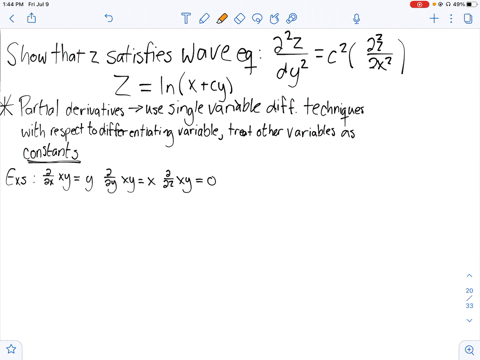 1:44 PM Fri Jul 9
49%
Show that z satisfies wave eq: ∂²z/dy² = c²(∂²z/∂x²)
Z = ln(x+cy)
* Partial derivatives → use single variable diff. techniques
with respect to differentiating variable, treat other variables as
constants
Exs: ∂/∂x xy = y ∂/∂y xy = x ∂/∂z xy = 0
20
/
33